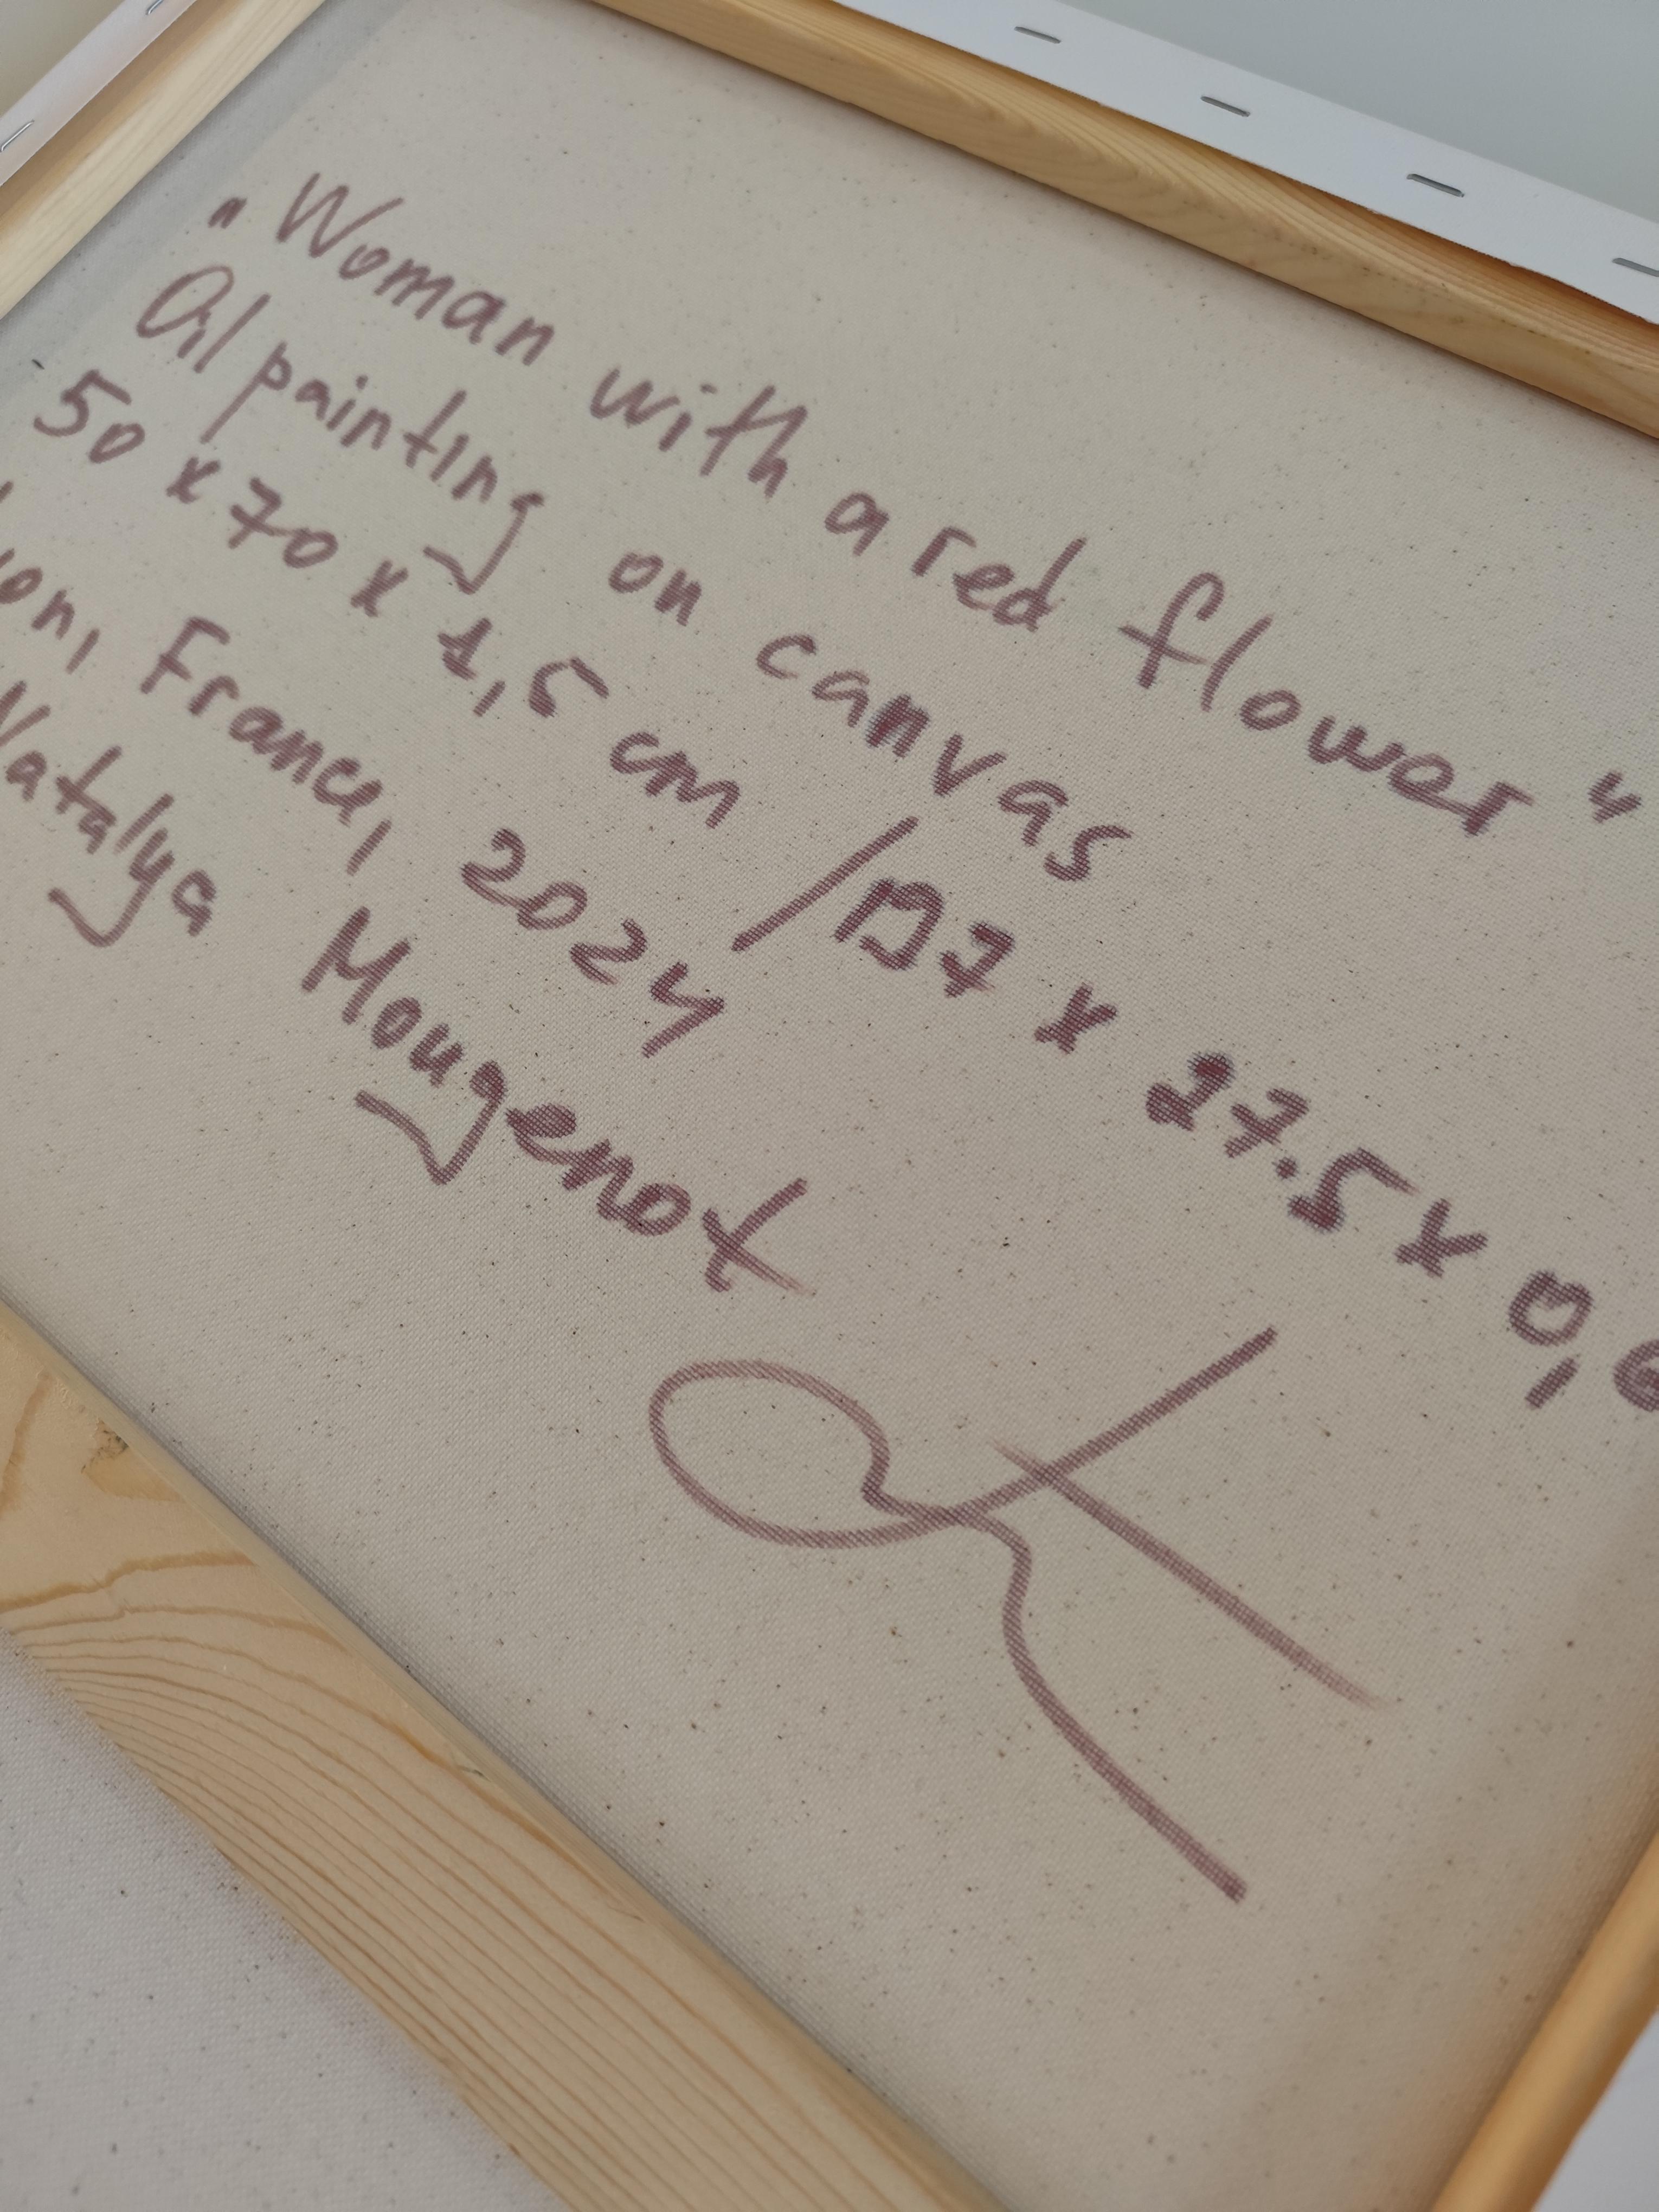 „Woman with a red flower“
Oil painting on canvas
50 x 70 x 1,5 cm / 197 x 27.5 x 0,6
yon, France, 2024
Natalya Mougenot